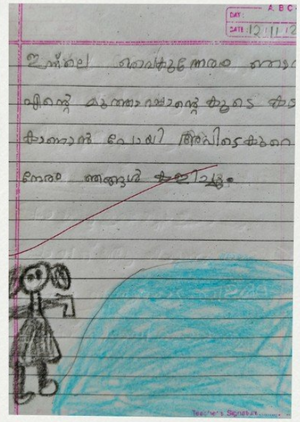 A B C
DAY:
DATE: 12/11/2
ഇന്നലെ വൈകുന്നേരം ഞാ
എന്റെ കൂടെ
കാണാൻ പോയി അവിടെകുറെ
നേരം ഞങ്ങൾ കളിച്ചു.
Teacher's Signature